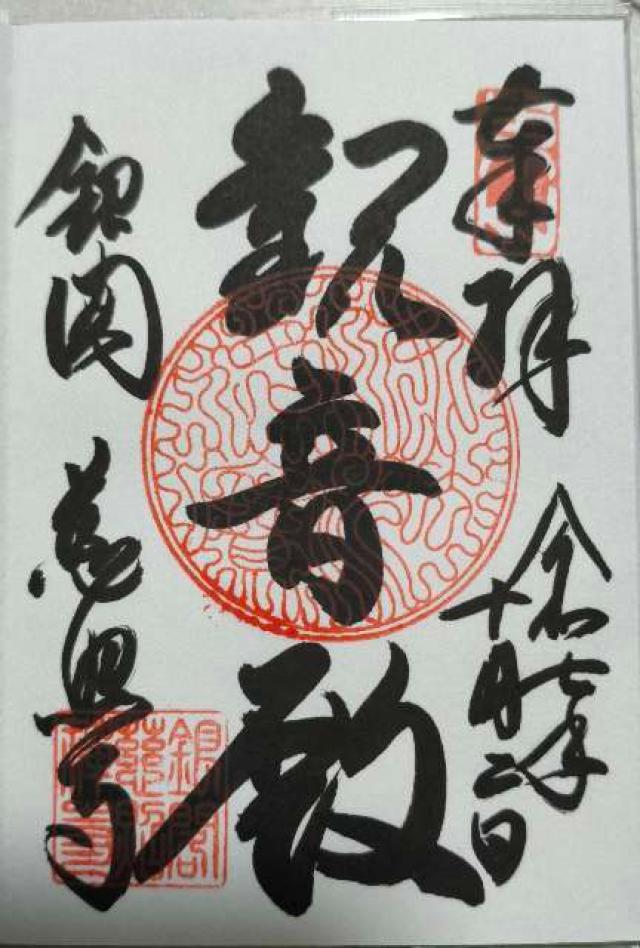 奉拝
令和七年
十月二日
観音殿
銀閣
慈照寺
銀閣
慈照
禅寺